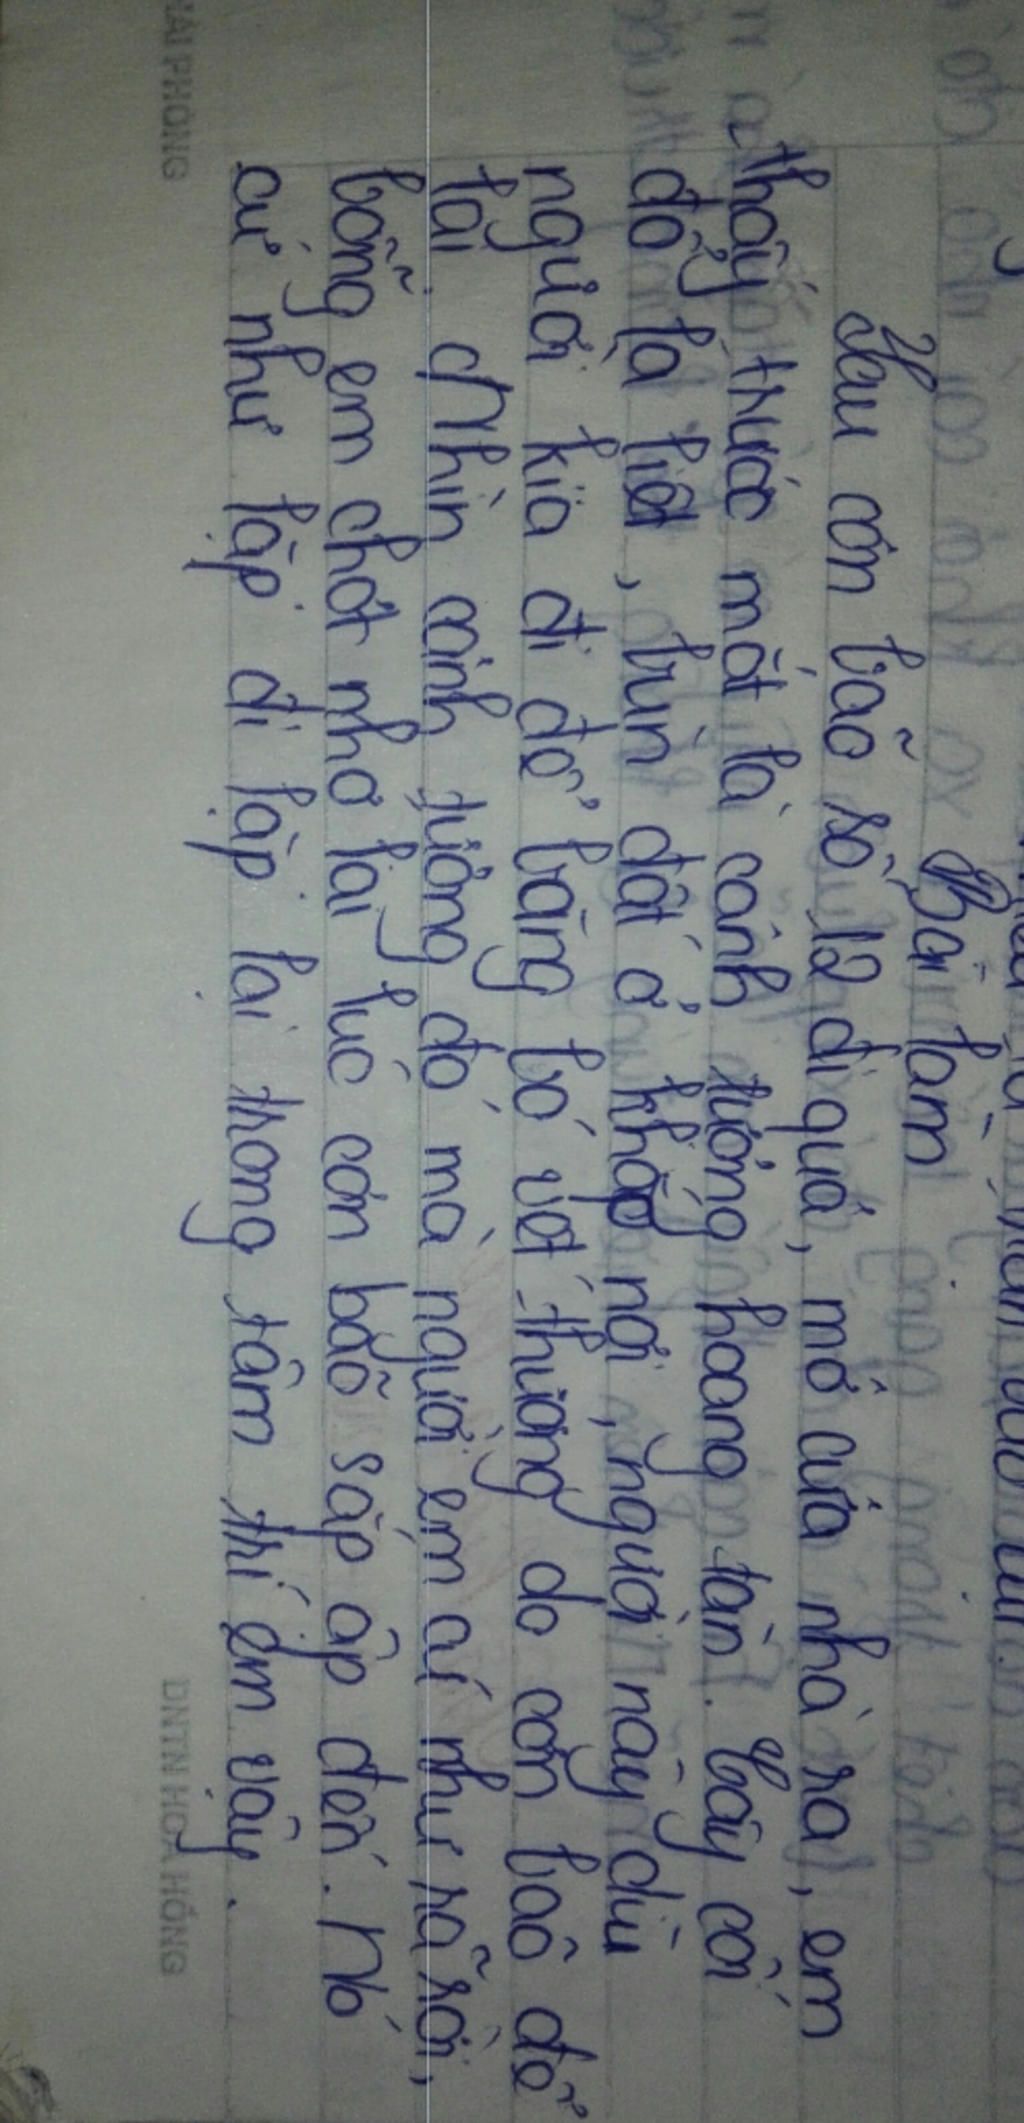 Bài làm
Sau cơn bão số 12 đi quá, mở cửa nhà ra, em
thấy trước mắt là cảnh tượng hoang tàn. Cây cối
đổ la liệt, bùn đất ở khắp nơi, người này dìu
người kia đi để băng bó vết thương do cơn baõ để
lại. Nhìn cảnh tượng đó mà người em cứ như rã rời,
bỗng em chợt nhớ lại lúc cơn bão sắp ập đến. Nó
cứ như lặp đi lặp lại trong tâm trí em vậy.
HẢI PHONG
DNTN HOA HỒNG